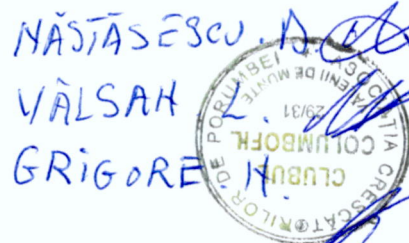 NĂSTĂSESCU. D.
VÂLSAN L.
GRIGORE. N.
ASOCIAȚIA CRESCĂTORILOR DE PORUMBEI
VĂLENII DE MUNTE
29/31
CLUBUL
COLUMBOFIL